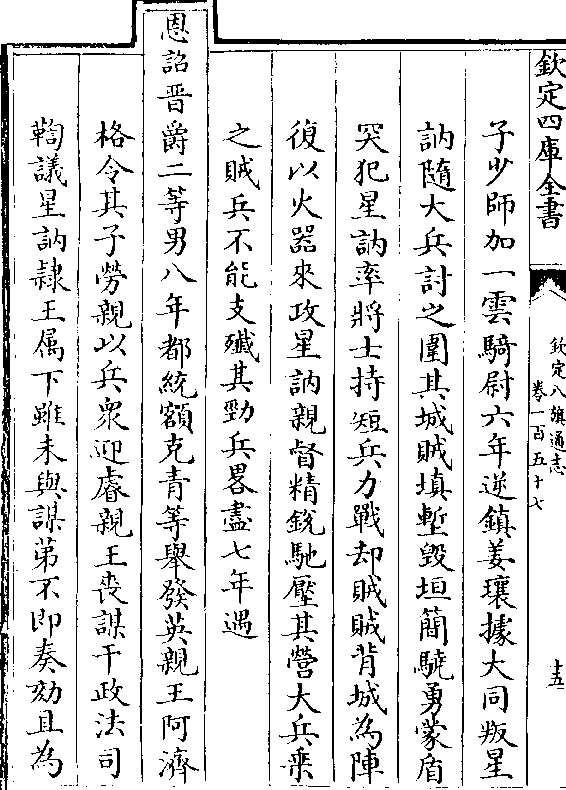 欽定四庫全書
欽定八旗通志
卷一百五十七
十五
子少師加一雲騎尉六年逆鎮姜瓖據大同叛星
訥隨大兵討之圍其城賊填塹毀垣簡驍勇蒙盾
突犯星訥率將士持短兵力戰却賊賊背城為陣
復以火器來攻星訥親督精銳馳壓其營大兵乗
之賊兵不能支殲其勁兵畧盡七年遇
恩詔晋爵二等男八年都統額克青等舉發英親王阿濟
格令其子勞親以兵衆迎睿親王丧謀干政法司
鞫議星訥隷王属下雖未與謀苐不即奏劾且為